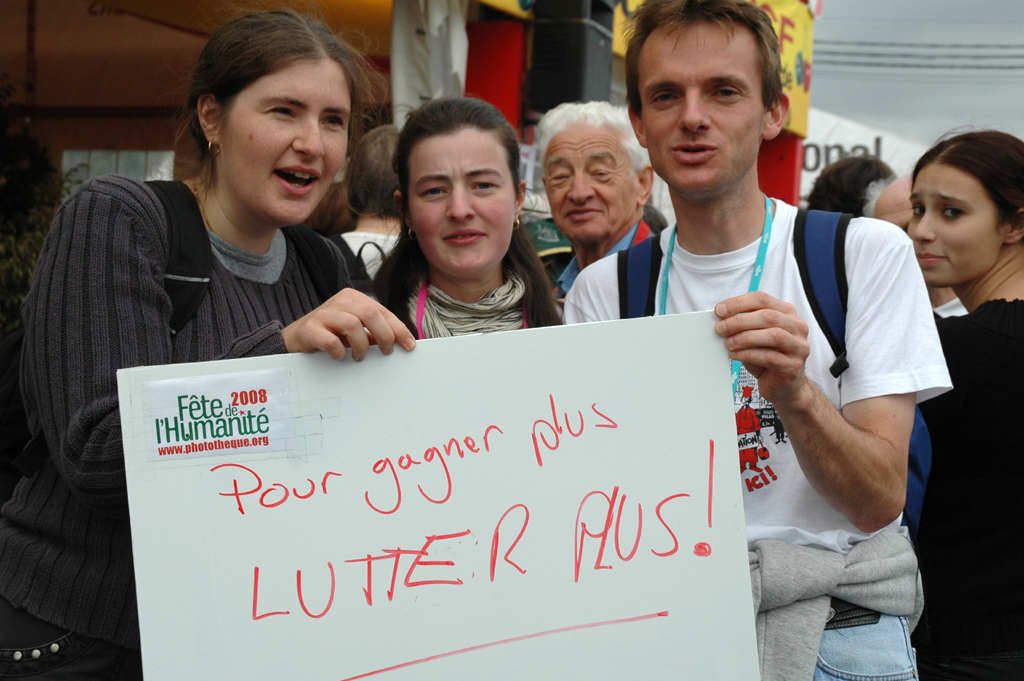 Fête de 2008
l'Humanité
www.phototheque.org
Pour gagner plus
LUTTER PLUS!
ICI!